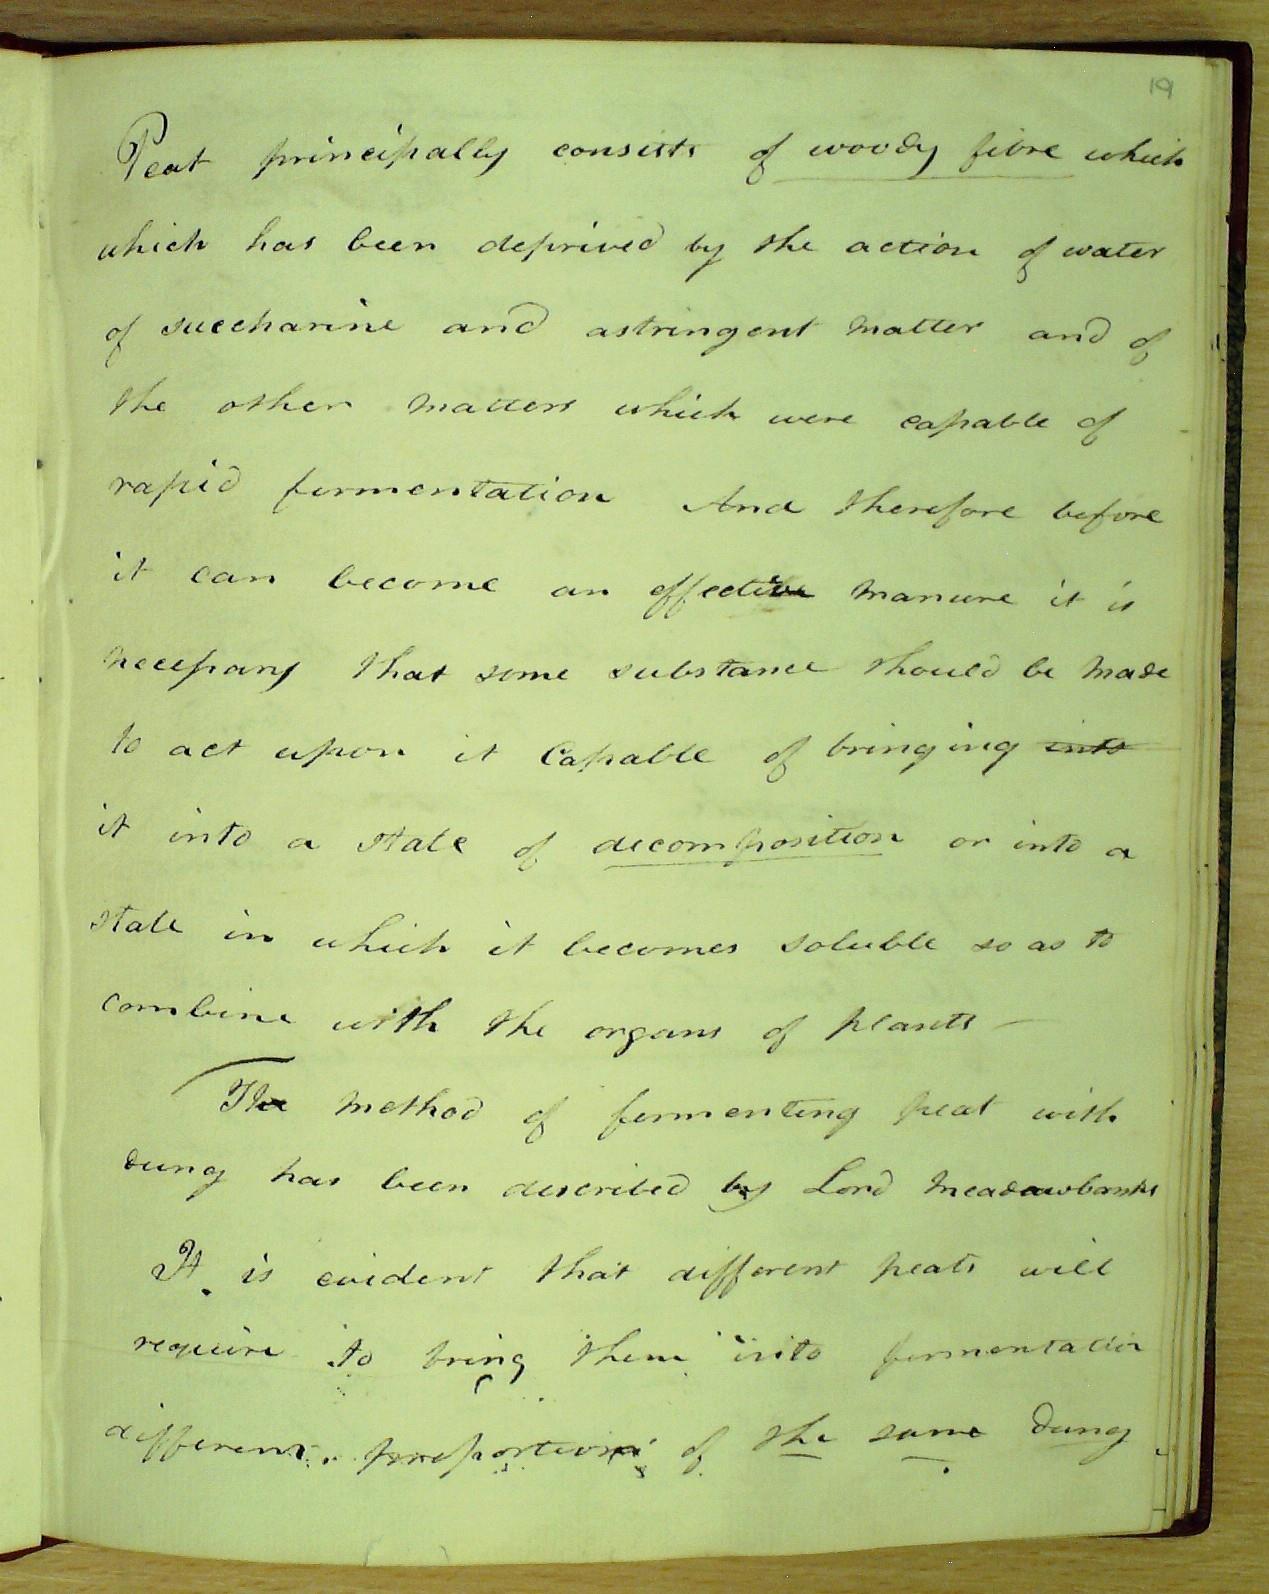 19
Peat principally consists of woody fibre which
which has been deprived by the action of water
of succharine and astringent matter and of
the other matters which were capable of
rapid fermentation And therefore before
it can become an effective manure it is
necessary that some substance should be made
to act upon it Capable of bringing into
it into a state of decomposition or into a
state in which it becomes soluble so as to
combine with the organs of plants —
The method of fermenting peat with
dung has been described by Lord Meadowbanks
It is evident that different peats will
require to bring them into fermentation
different proportions of the same dung